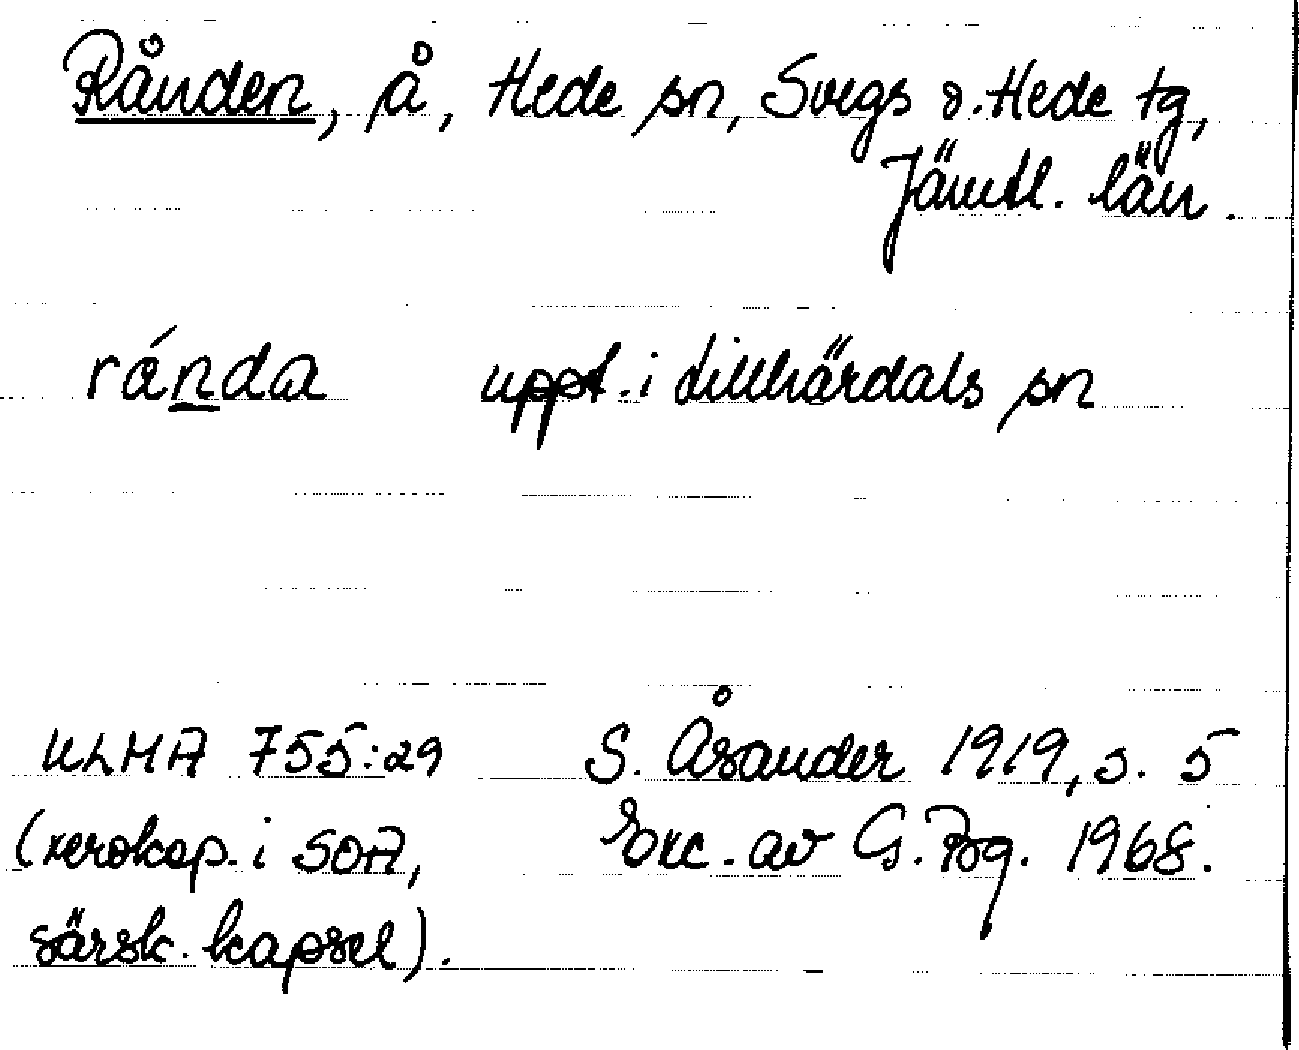 Rånden, å, Hede sn, Svegs o. Hede tg,
Jämtl. län.
ránda uppt. i Lillhärdals sn
ULMA 755:29 S. Åsander 1919, s. 5
(xerokop. i SOA, Exc. av G. Bg. 1968.
särsk. kapsel).